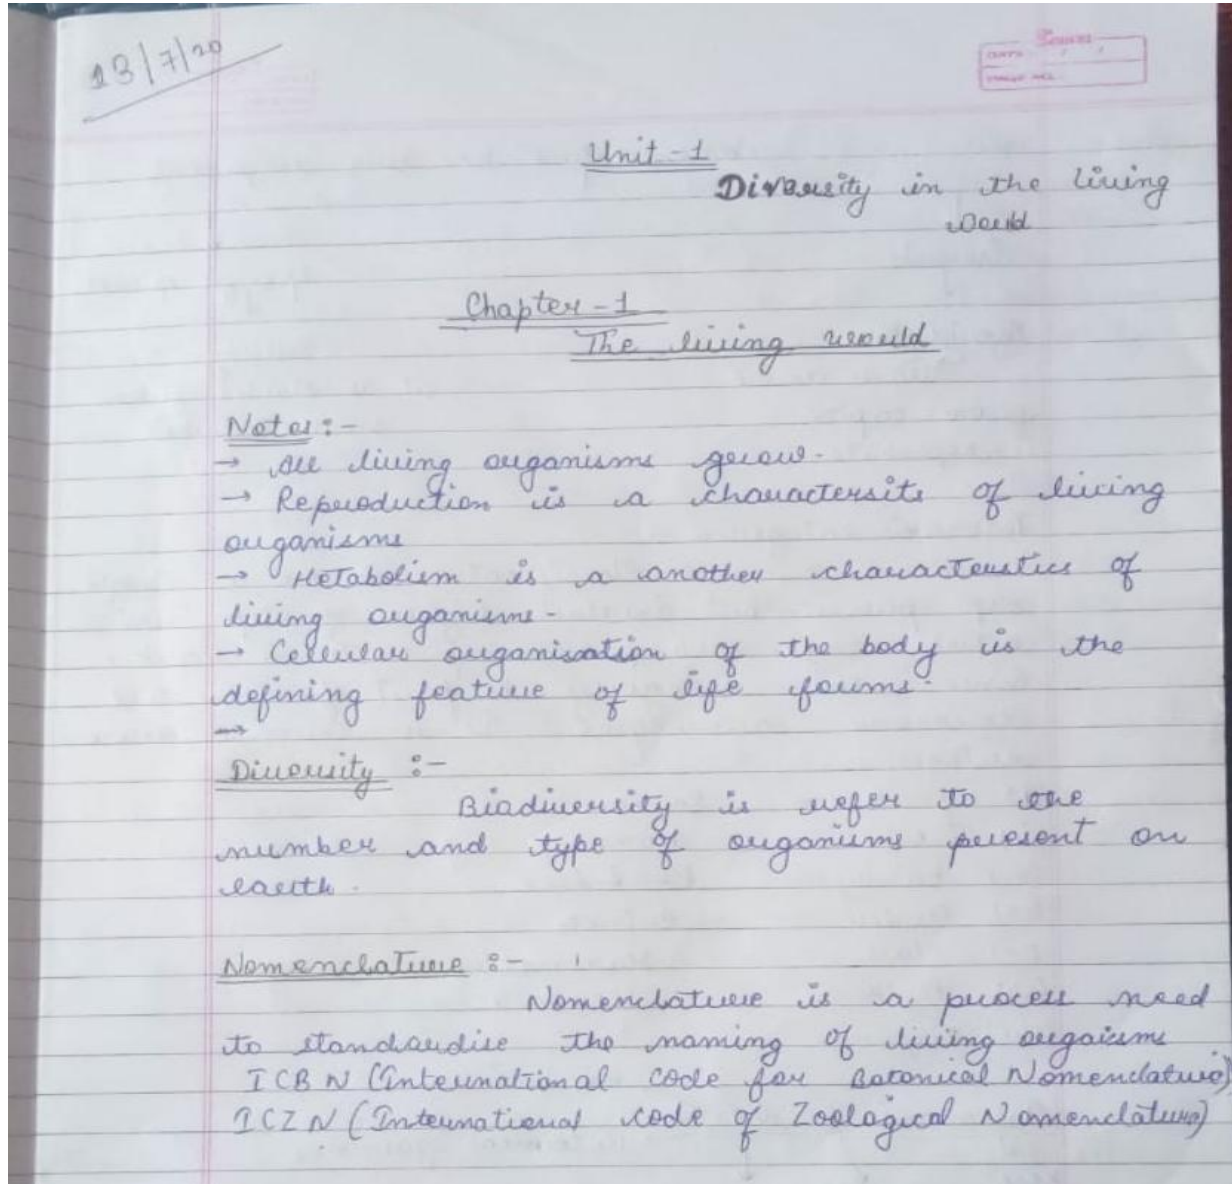 13/7/20
Unit - 1
Diversity in the living
world
Chapter - 1
The living world
Notes :-
→ All living organisms grow.
→ Reproduction is a charactersits of living
organisms
→ Metabolism is a another characterstics of
living organisms.
→ Cellular organisation of the body is the
defining feature of life forms.
→
Diversity :-
Biodiversity is refer to the
number and type of organisms present on
earth.
Nomenclature :-
Nomenclature is a process need
to standardise the naming of living orgaisms
ICBN (International code for Botonical Nomenclature)
ICZN (International code of Zoological Nomenclature)